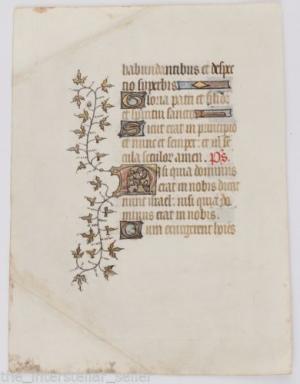 habundantibus et despec
tio superbis
Gloria patri et filio
et spiritui sancto
Sicut erat in principio
et nunc et semper et in se
cula seculor amen. Ps.
Nisi quia dominus
erat in nobis dicat
nunc israel: nisi quia do
minus erat in nobis.
Cum exurgerent hoies
the_interstellar_seller